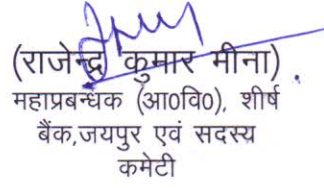 (राजेन्द्र कुमार मीना)
महाप्रबन्धक (आ0वि0), शीर्ष
बैंक,जयपुर एवं सदस्य
कमेटी